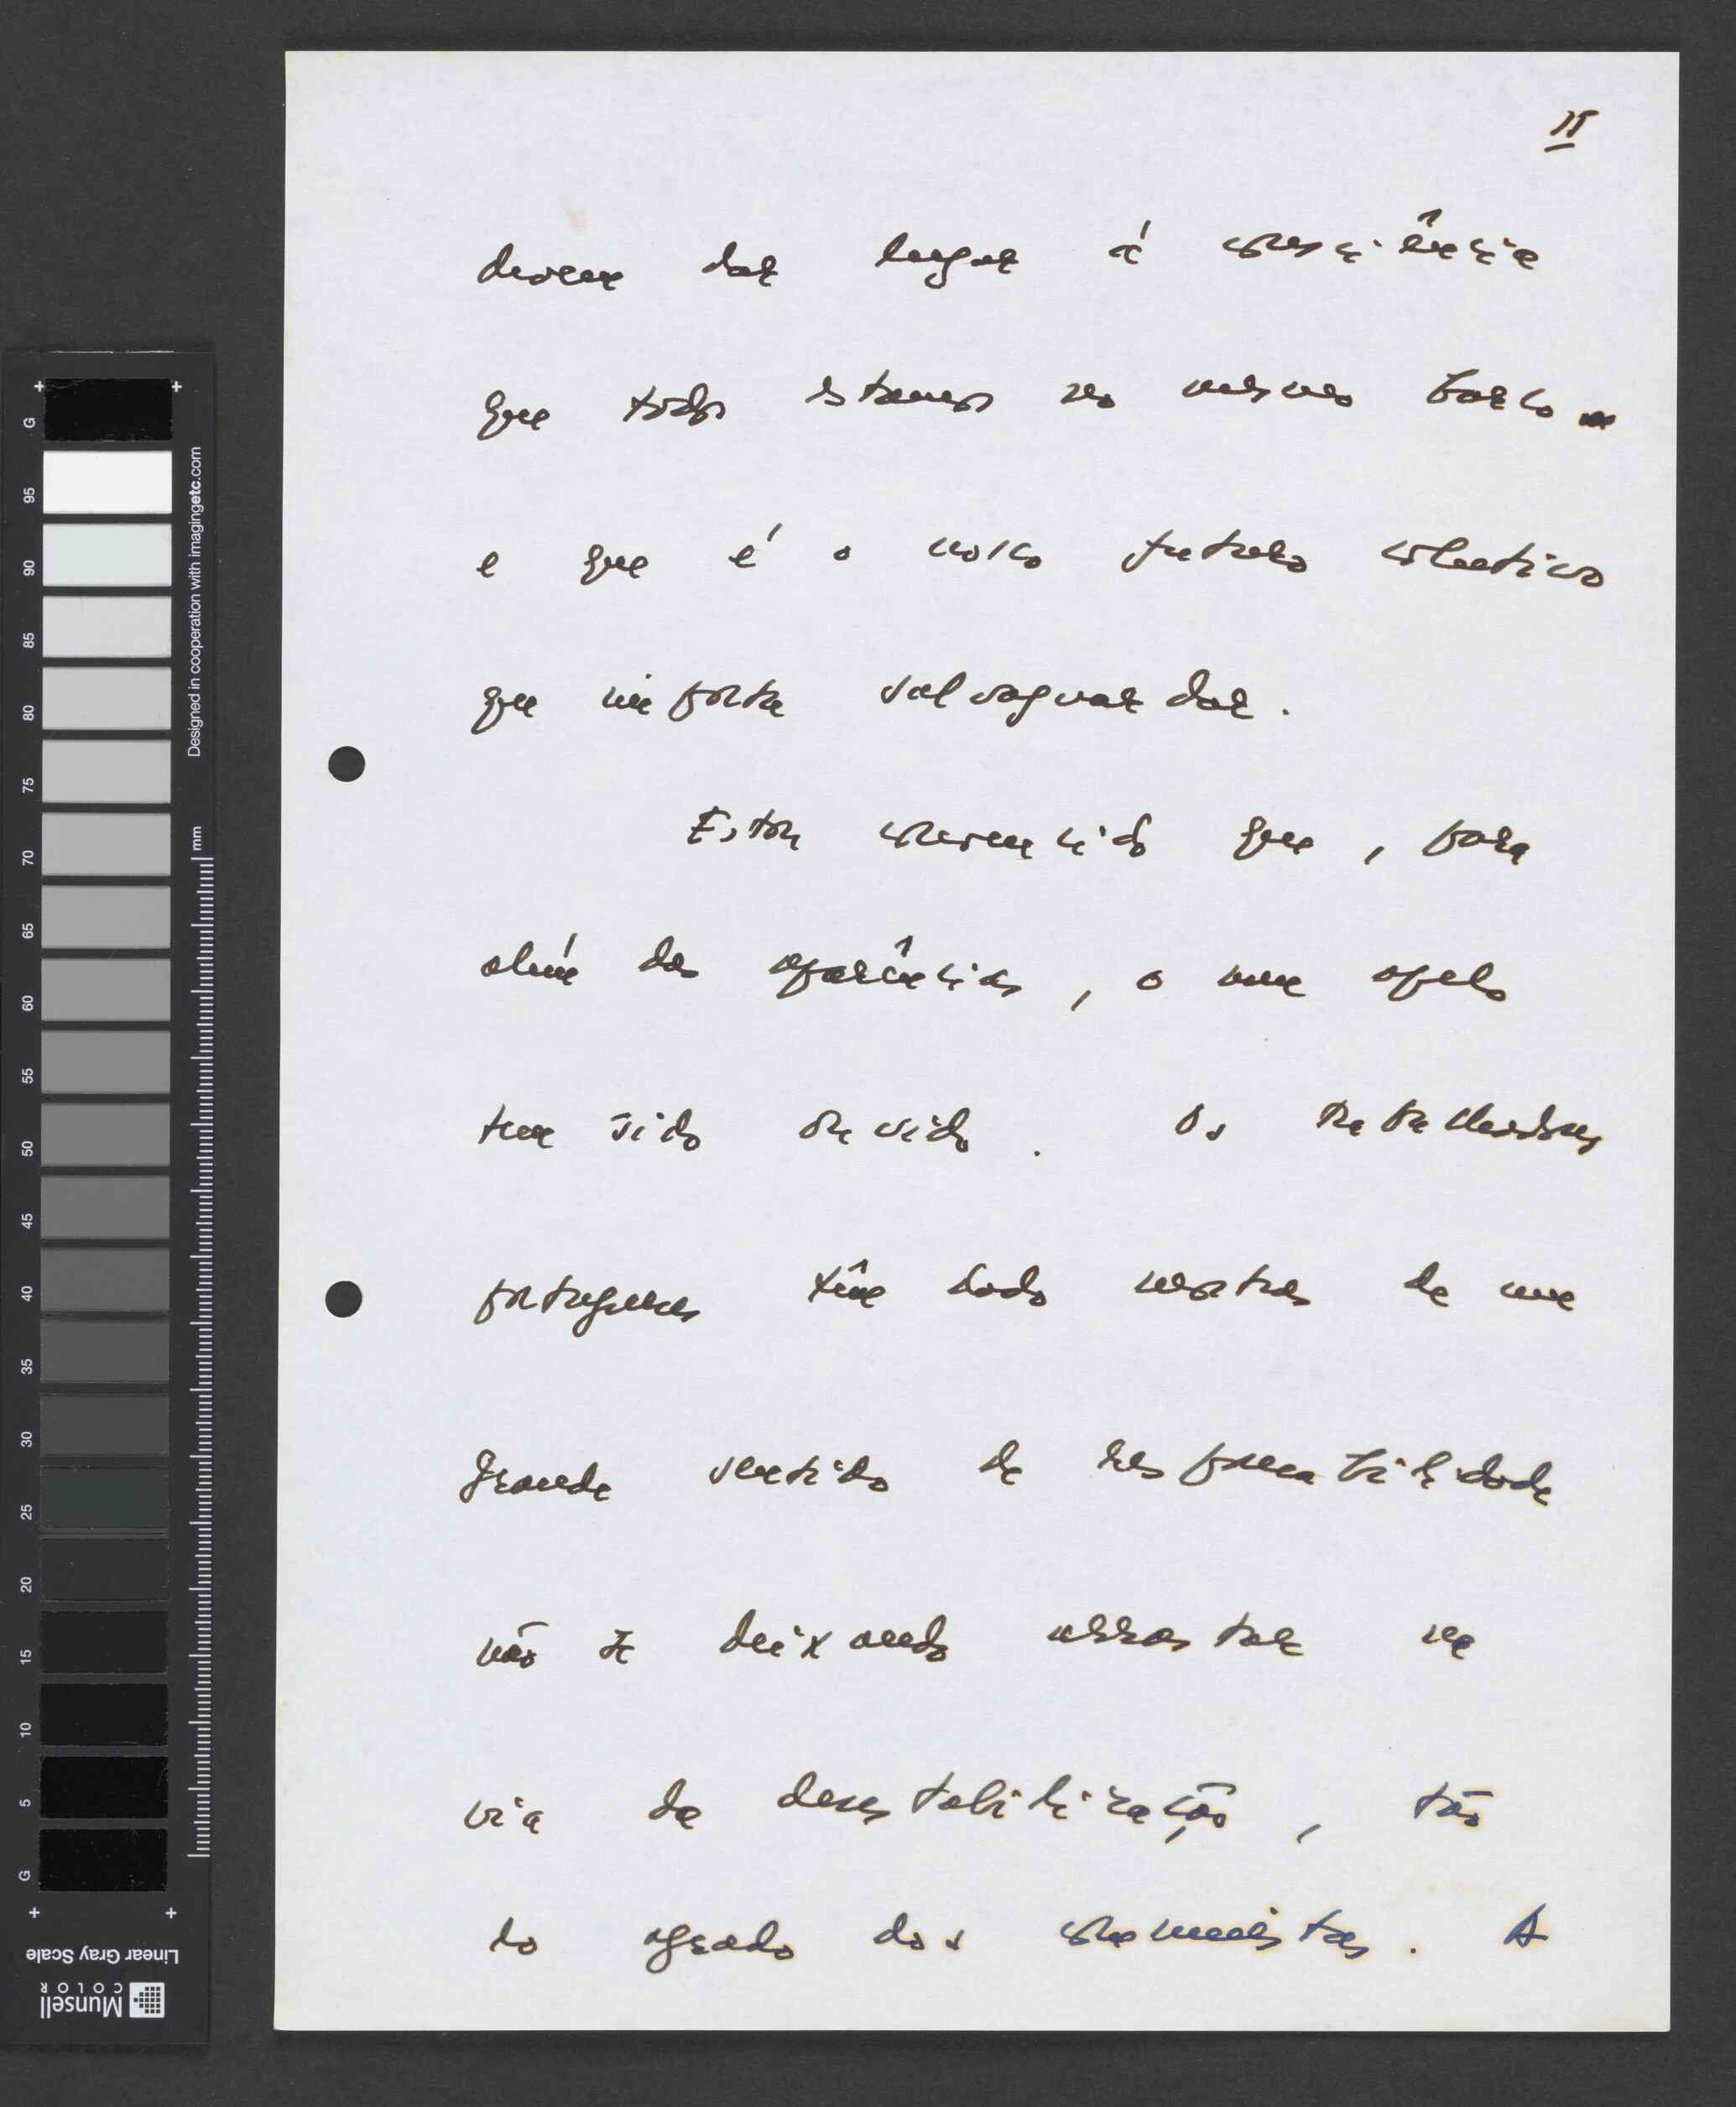 II
devem dar lugar à consciência
que todos estamos no mesmo barco
e que é o nosso futuro colectivo
que importa salvaguardar.
Estou convencido que, para
além das aparências, o meu apelo
tem sido ouvido. Os trabalhadores
portugueses têm dado mostras de um
grande sentido de responsabilidade
não se deixando arrastar na
via da desestabilização, tão
do agrado dos comunistas. A
G 95 90 85 80 75 70 65 60 55 50 45 40 35 30 25 20 15 10 5 G
Designed in cooperation with imagingetc.com
mm
Linear Gray Scale
Munsell
COLOR